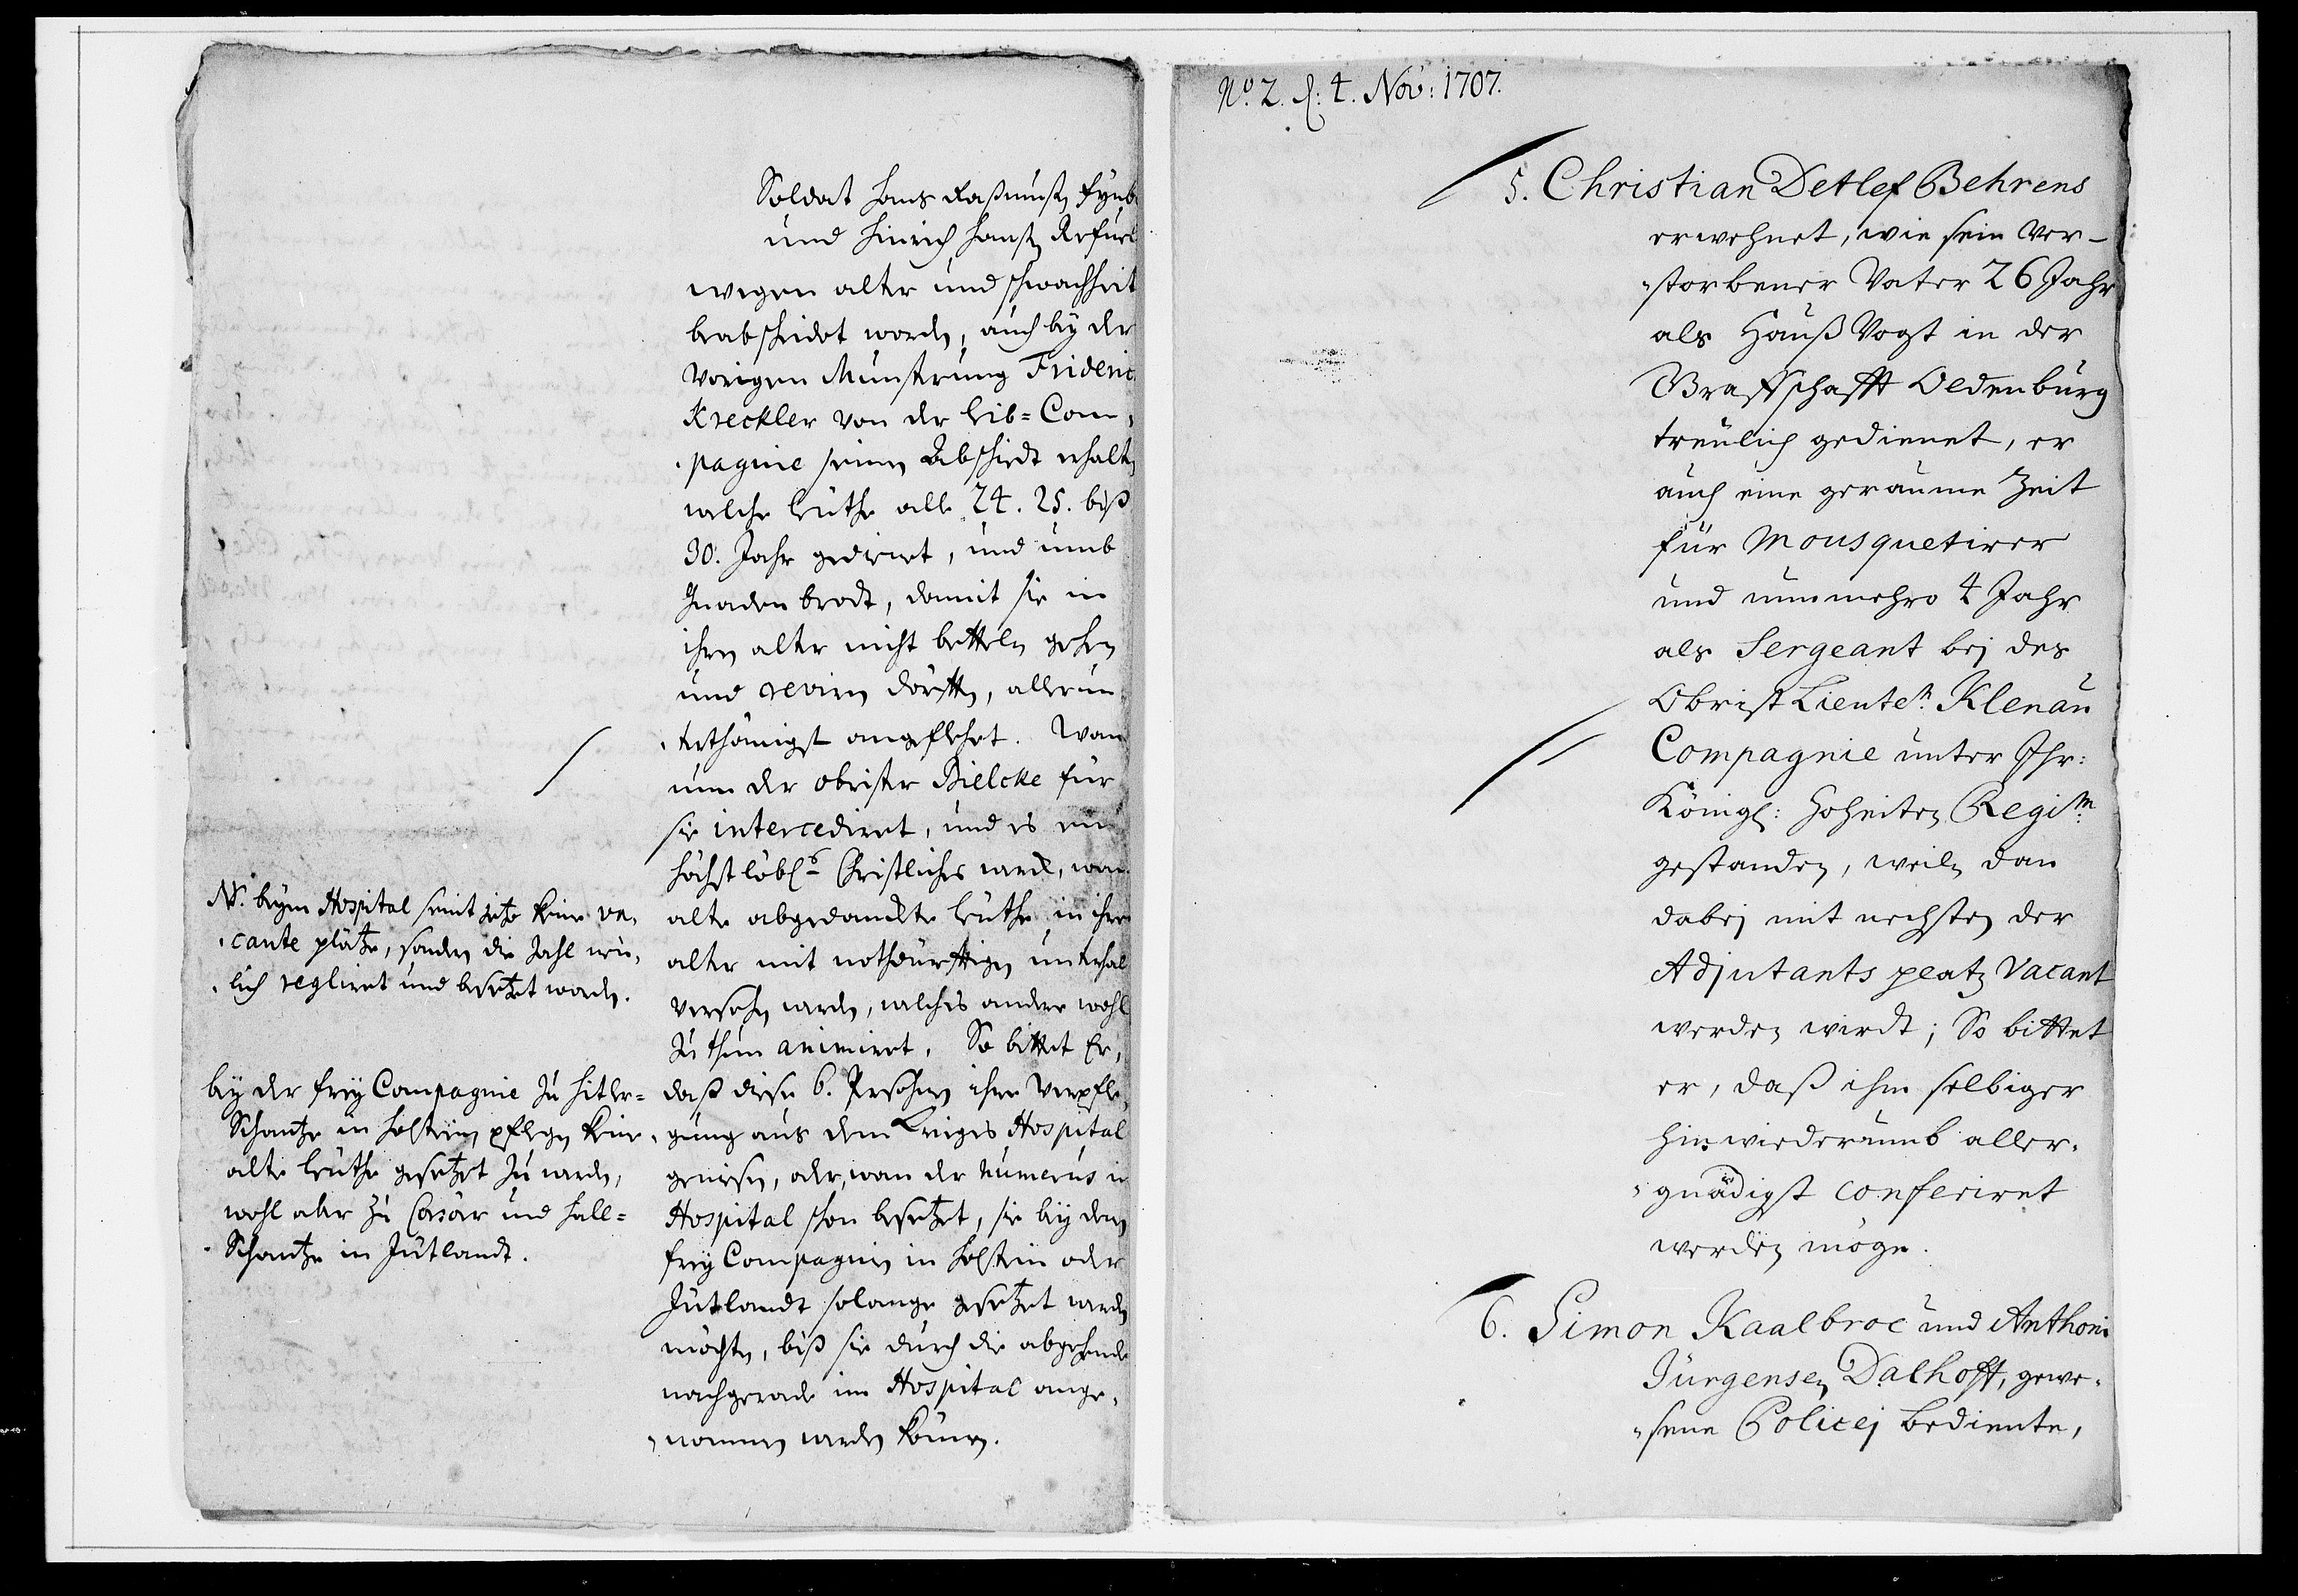 Soldat Hans Raßmußen Fynb
und Hinrich Hanßen Refuel
wegen alter und schwachheit
beabscheidet worden, auch bey der
Vorigen Munsterung Frideric
Kreckler von der Leib=Com,
pagnie seinen Abschiedt erhalten
welche leuthe alle 24. 25. biß
30. Jahr gedienet, und umb
Gnaden brodt, damit sie in
ihren alter nicht betteln gehen
und creviren dörffen, allerun,
terthänigst angeflehet. Wan
nun der obrister Bielcke für
sie intercediret, und es ein
höchst löbl. Christliches werck, wan
alte abgedanckte leuthe in ihren
alter mit nothdürfftigen unterhal
versehen werden, welches andere wohl
zu thun animiret. So bittet Er,
daß diese 6. Persohnen ihre Verpfle,
gung aus dem Krieges Hospital
geniesen, oder, wan der Numerus in
Hospital schon besetzet, sie bey den
frey Compagnien in Holstein oder
Jütlandt solange gesetzet werden
möchten, biß sie durch die abgehende
nachgerade im Hospital ange,
nommen werden können.
NB. beym Hospital seint jetzo keine va,
cante plätze, sondern die Zahl neu,
lich regliret und besetzet worden.
bey der frey Compagnie zu Hitler=
Schantze in Holstein pflegen keine
alte leuthe gesetzet zu werden,
wohl aber zu Corsör und Hall=
Schantze in Jütlandt.
No. 2. d: 4. Nov: 1707.
5. Christian Detlef Behrens
erwehnet, wie sein Ver-
storbener Vater 26 Jahr
als Hauß Vogt in der
Graffschafft Oldenburg
treulich gedienet, er
auch eine geraume Zeit
für Mousquetirer
und nunmehro 4 Jahr
als Sergeant bej des
Obrist Lieuten Klenau
Compagnie unter Ihr:
Königl: Hoheiten Regim
gestanden, weilen dan
dabej mit nechsten der
Adjutants platz Vacant
werden wirdt; So bittet
er, daß ihm selbiger
hinwiederumb aller,
gnädigst conferiret
werden möge.
6. Simon Kaalbroc und Anthoni
Jürgensen Dalhoff, gewe,
sene Policej bediente,